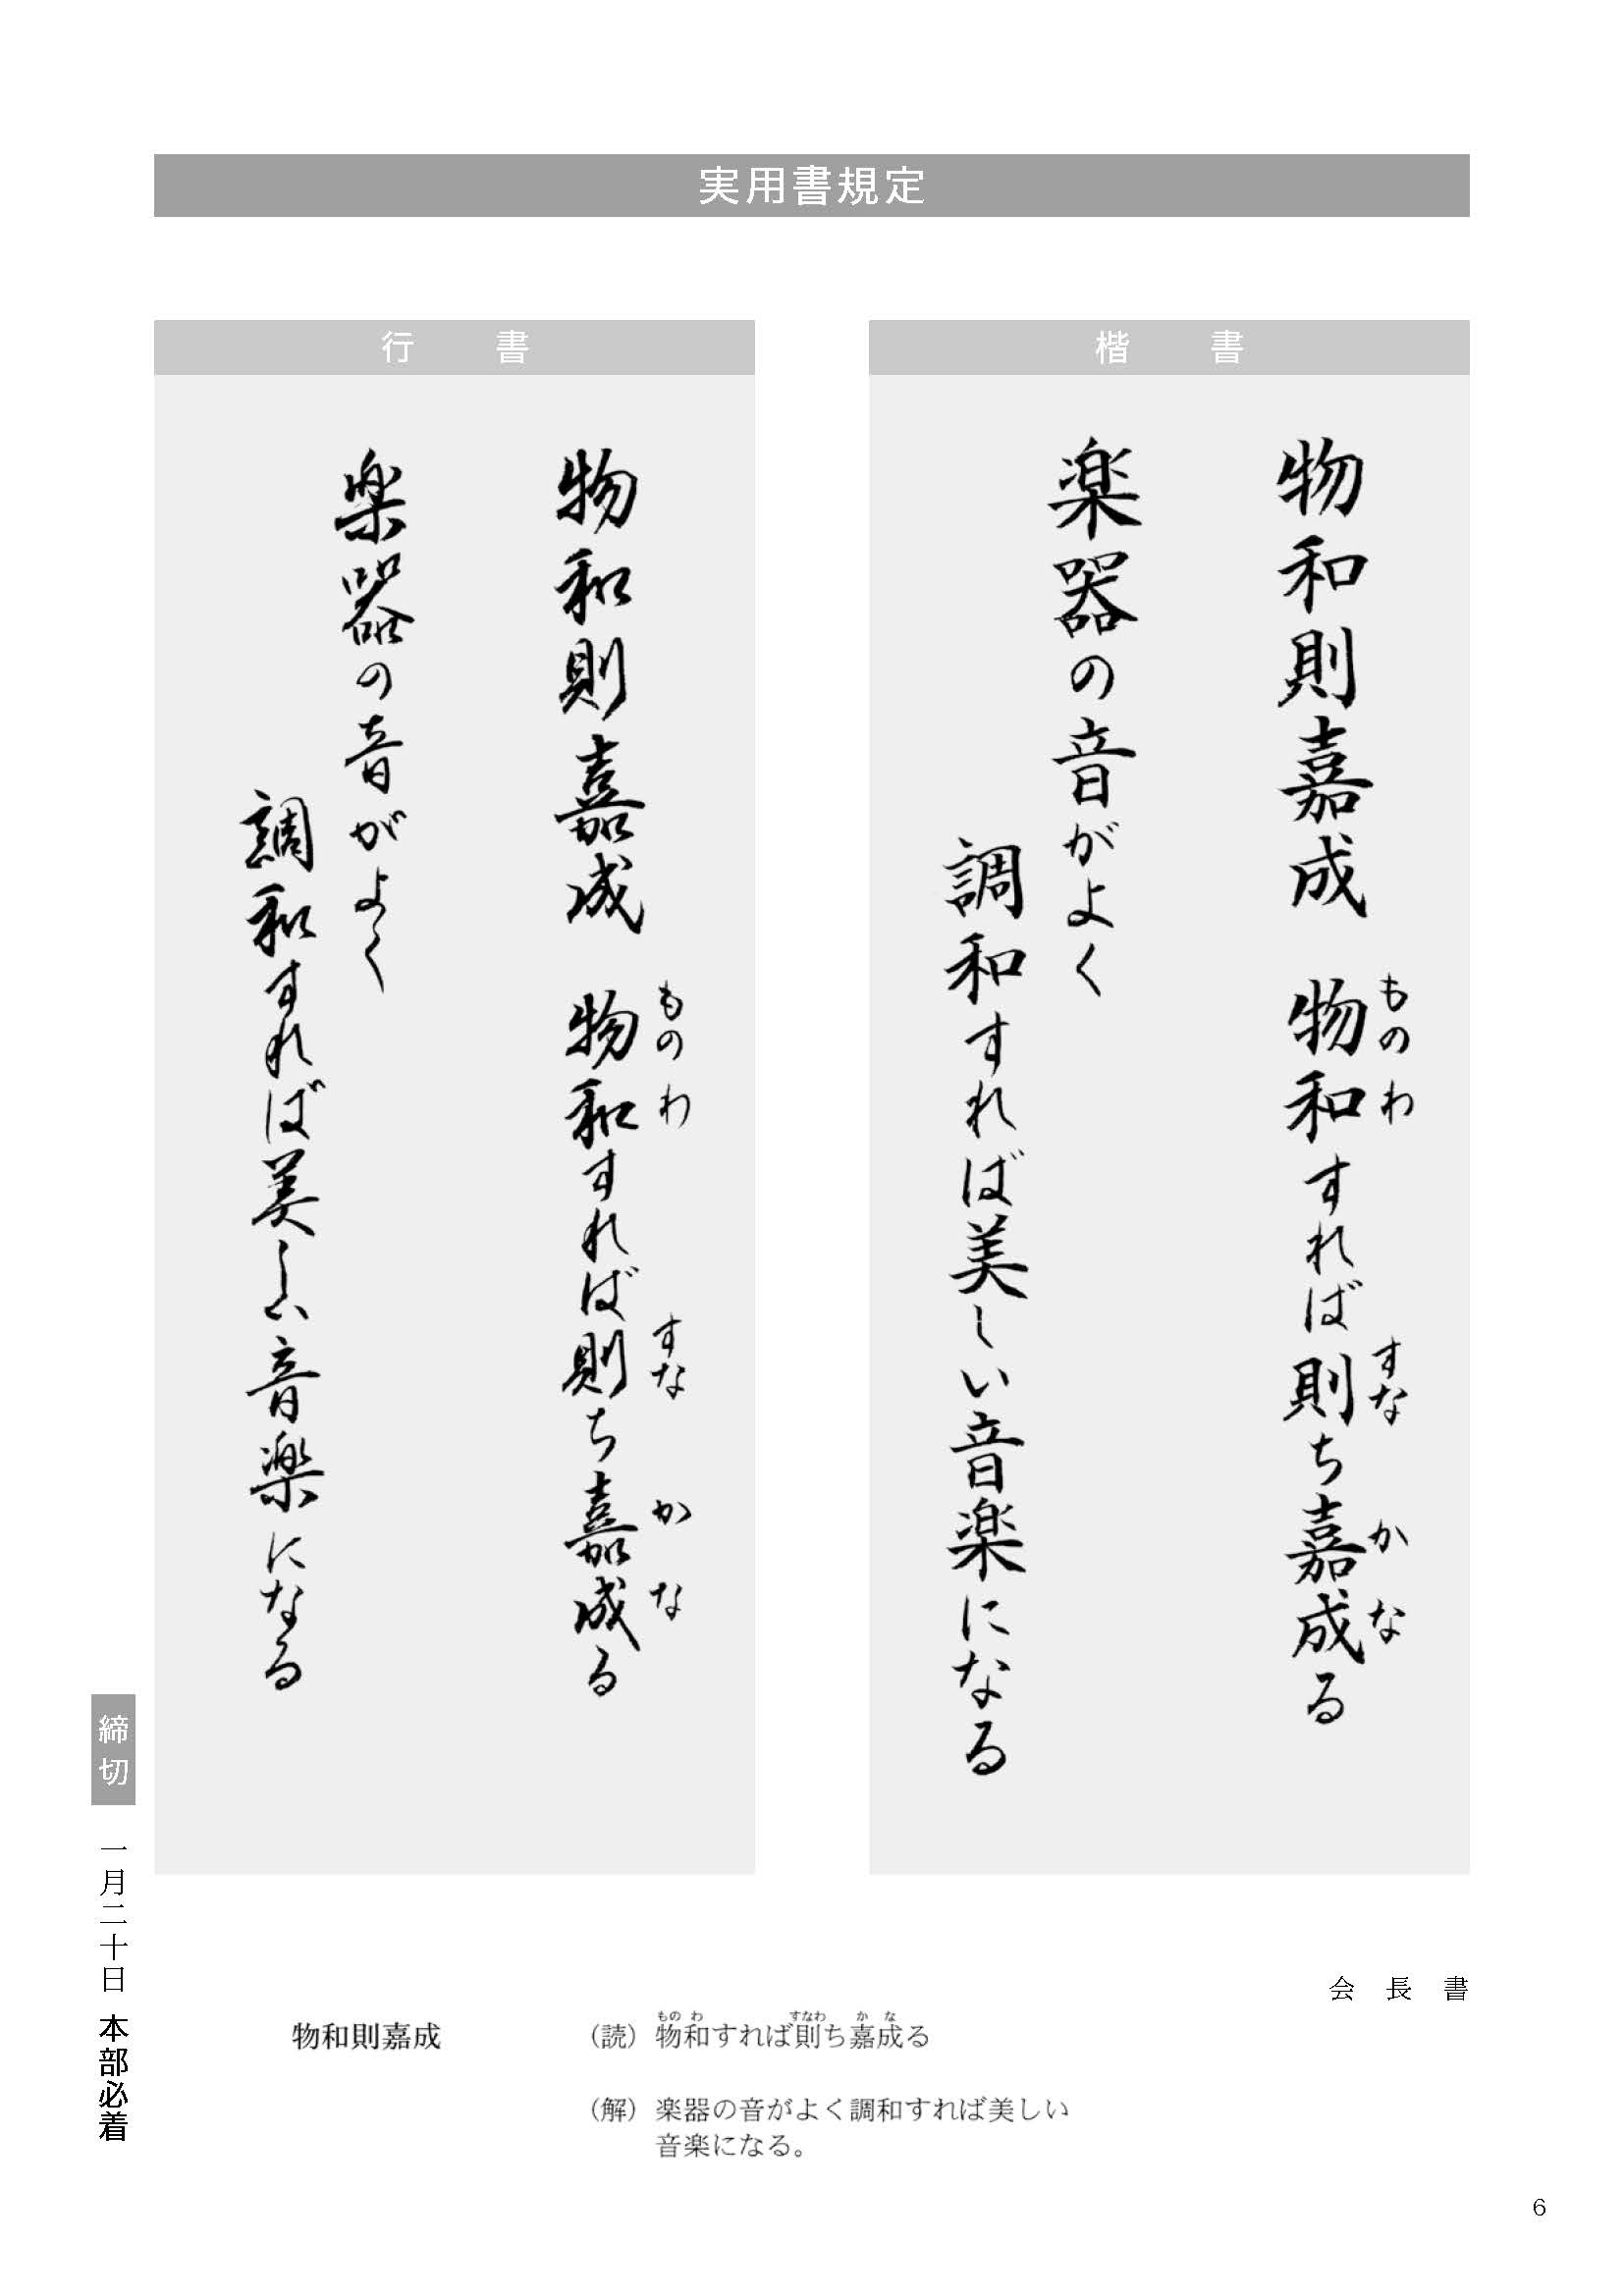 実用書規定
楷書
物和則嘉成 物和すれば則ち嘉成る
もの わ すな か な
楽器の音がよく
調和すれば美しい音楽になる
行書
物和則嘉成 物和すれば則ち嘉成る
もの わ すな か な
楽器の音がよく
調和すれば美しい音楽になる
会長書
締切 一月二十日 本部必着
物和則嘉成
もの わ すなわ か な
（読）物和すれば則ち嘉成る
（解）楽器の音がよく調和すれば美しい
音楽になる。
6